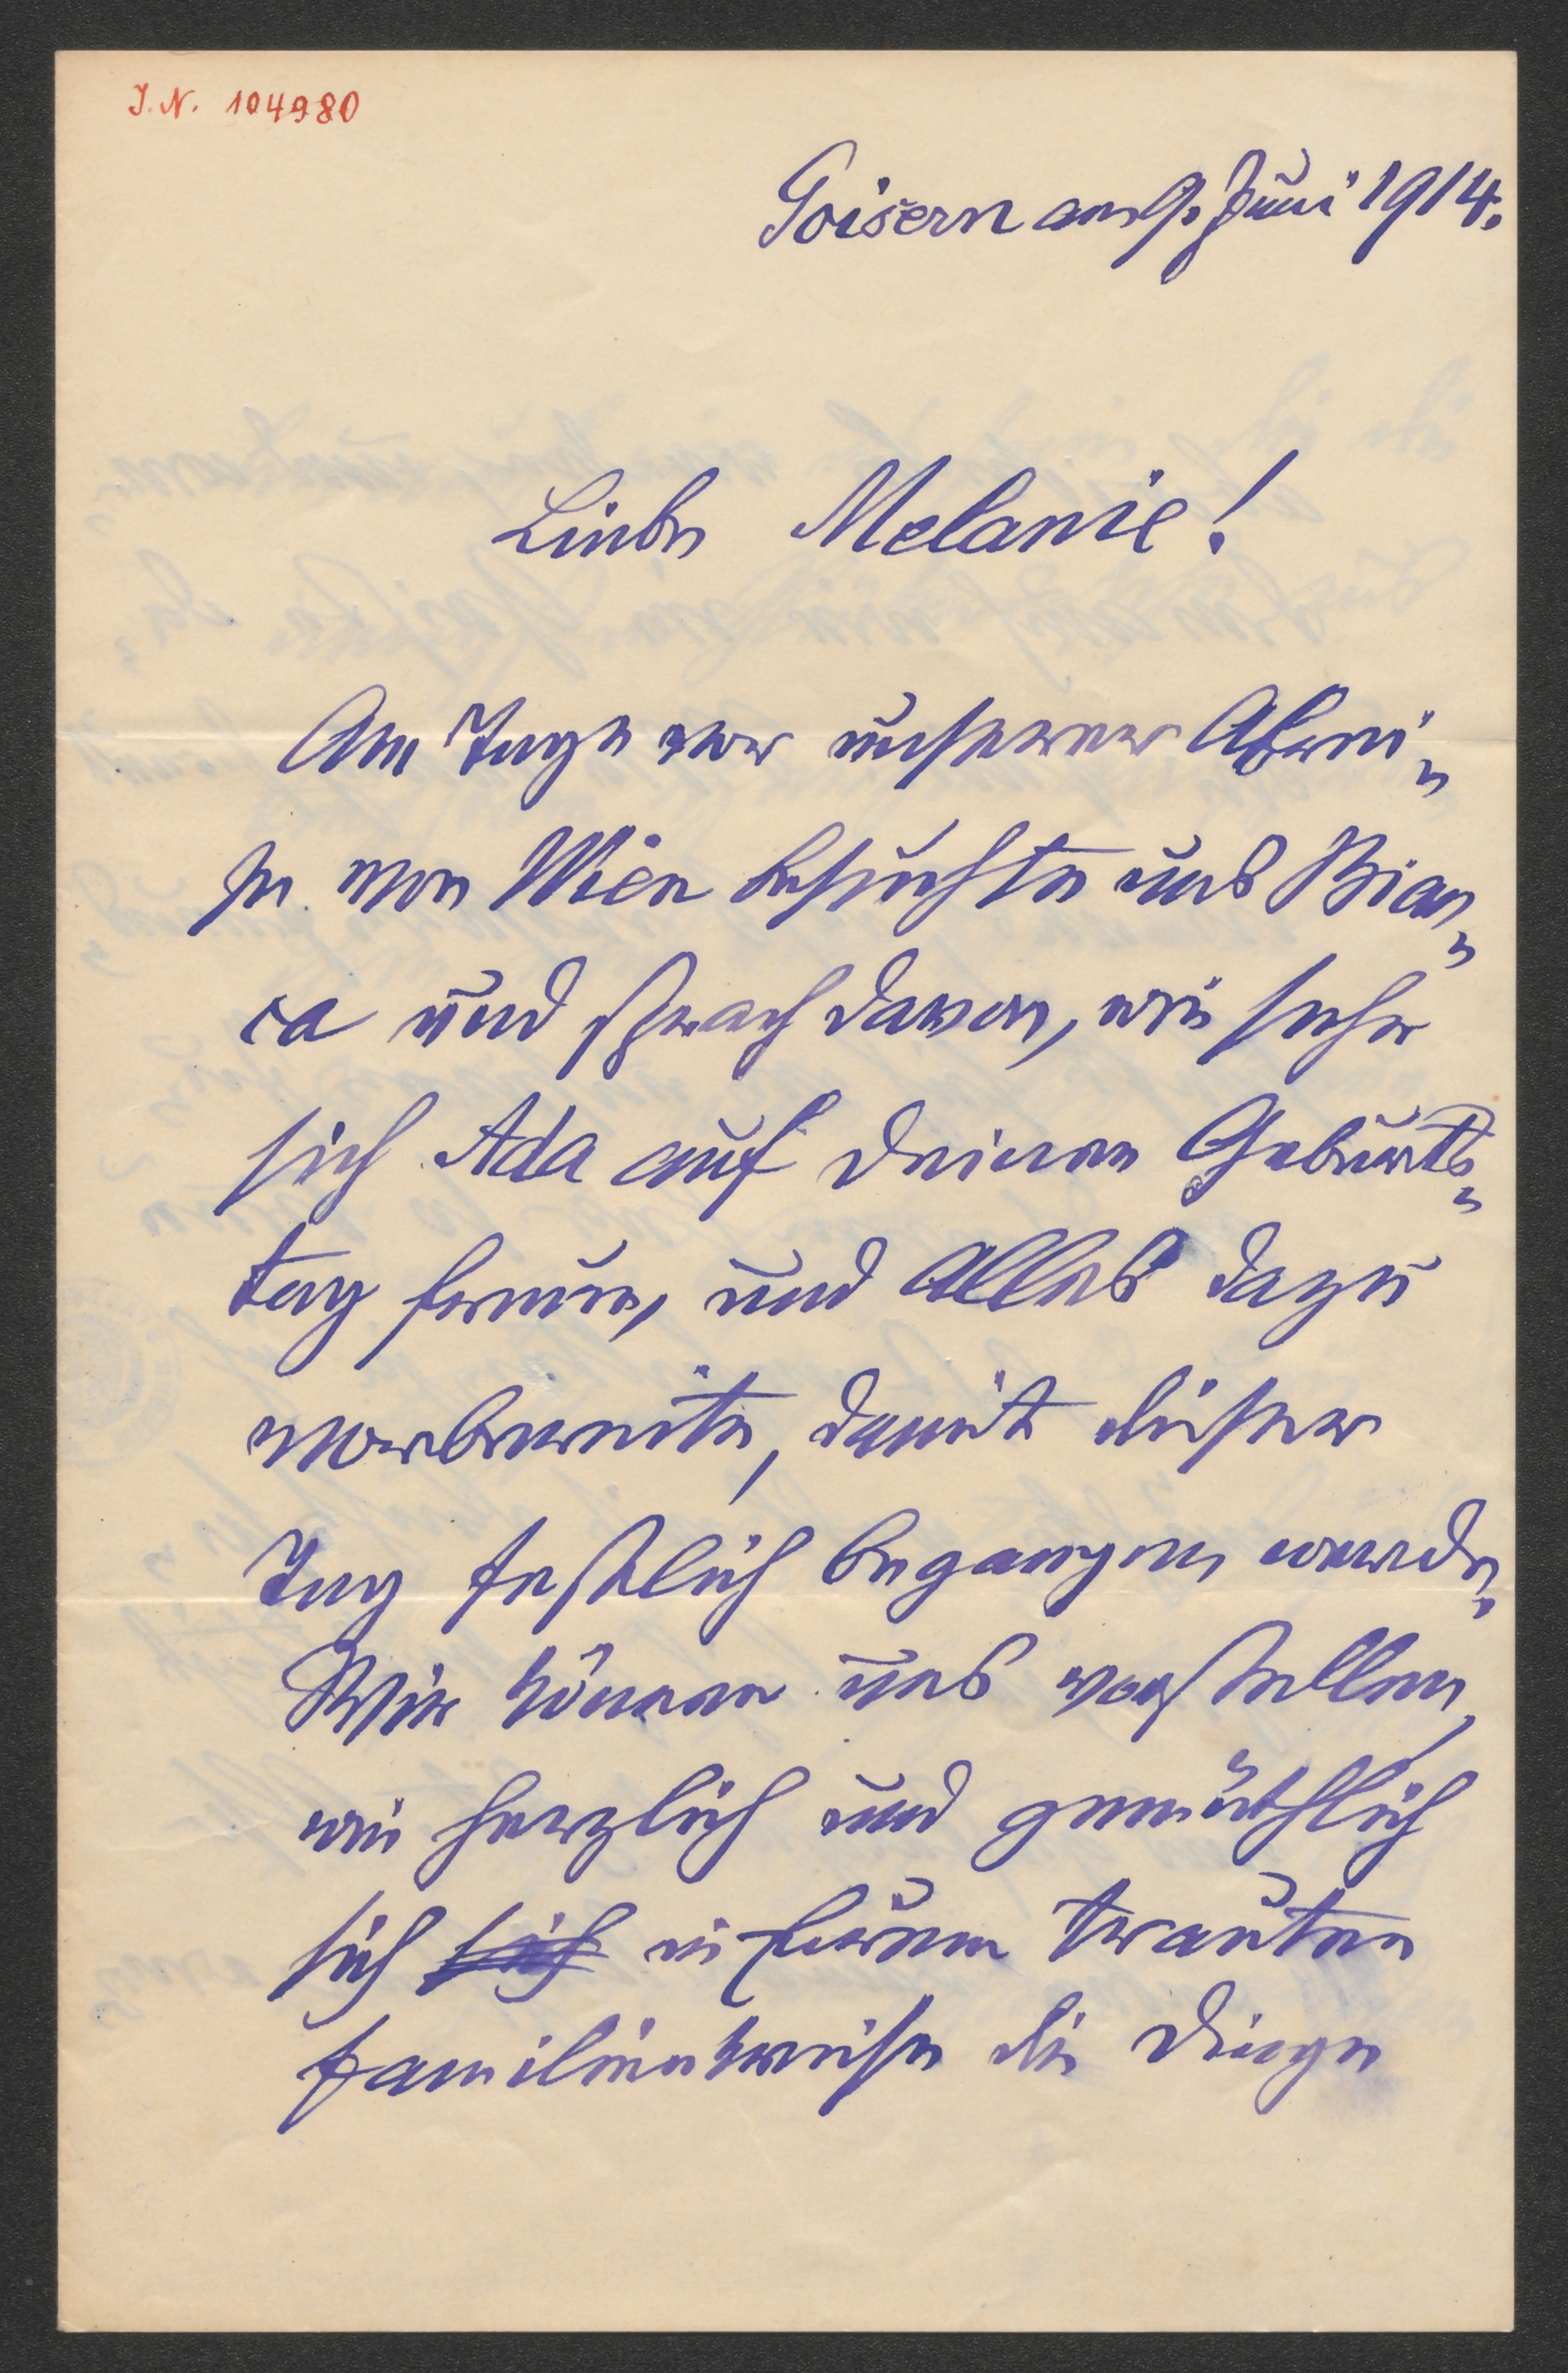 I.N. 104980
Goisern am 9. Juni 1914.
Liebe Melanie!
Am Tage vor unserer Abrei„
se von Wien besuchte uns Bian„
ca und sprach davon, wie sehr
sich Ada auf Deinen Geburts„
tag freue, und Alles dazu
vorbereite, damit dieser
Tag festlich begangen werde.
Wir können uns vorstellen,
wie herzlich und gemüthlich
sich sich in Eurem trauten
Familienkreise die Dinge